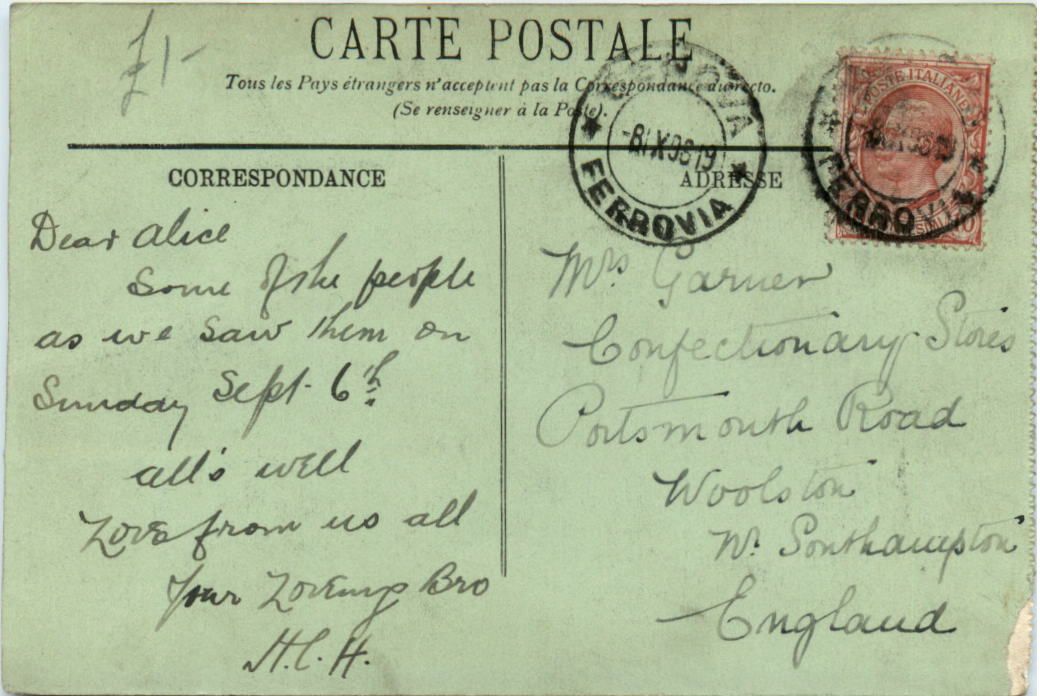 £1-
CARTE POSTALE
Tous les Pays étrangers n'acceptent pas la Correspondance au recto.
(Se renseigner à la Poste).
CORRESPONDANCE
ADRESSE
GENOVA
-8.IX.08.19
FERROVIA
POSTE ITALIANE
FERROVIA
Dear Alice
Some of the people
as we saw them on
Sunday Sept. 6th
all's well
Love from us all
Your Loveing Bro
H.C.H.
Mrs Garner
Confectionary Stores
Portsmouth Road
Woolston
Nr. Southampton
England